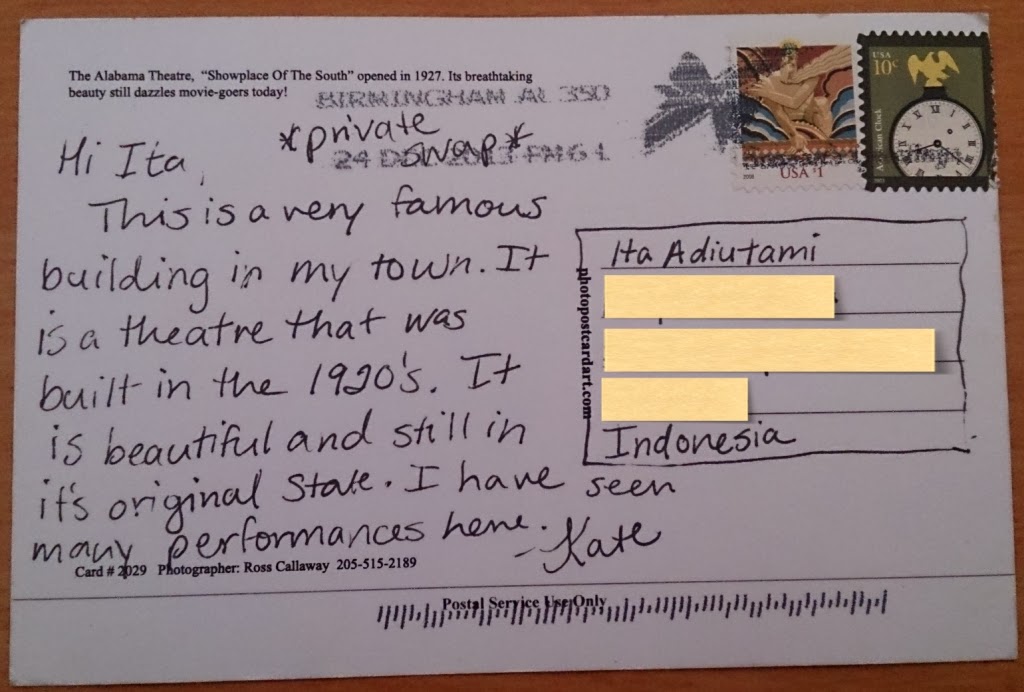 The Alabama Theatre, "Showplace Of The South" opened in 1927. Its breathtaking
beauty still dazzles movie-goers today!
BIRMINGHAM AL 350
24 PM 6 L
*private
swap*
USA $1
USA
10c
Hi Ita,
This is a very famous
building in my town. It
is a theatre that was
built in the 1920's. It
is beautiful and still in
it's original State. I have seen
many performances here.
-Kate
Ita Adiutami
Indonesia
photopostcardart.com
Card # 2029 Photographer: Ross Callaway 205-515-2189
Postal Service Use Only